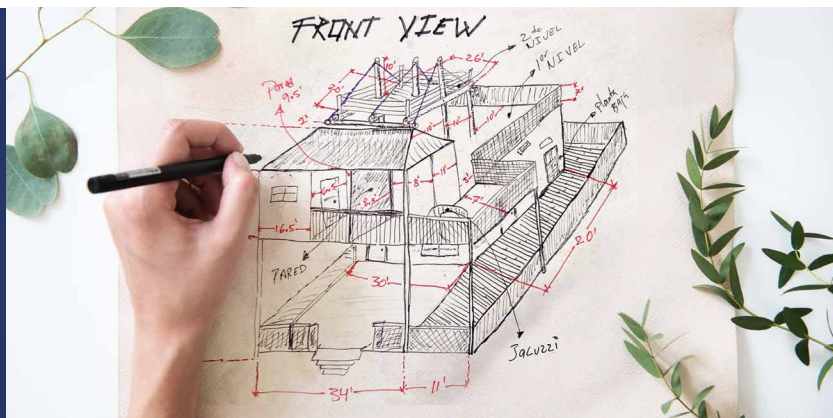 FRONT VIEW
2do NIVEL
1er NIVEL
Planta Baja
Pared 9.5'
20'
10'
26'
2'
10'
10'
10'
8'
11'
7'
16.5'
8.5'
PARED
30'
20'
Jacuzzi
34'
11'